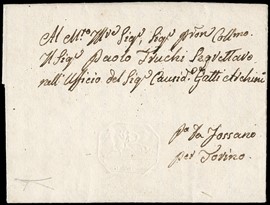 Al M.to Ill.re Sig.r, Sig.r pron Collmo.
Il Sig.r Paolo Truchi Segrettaro
nell'Uffizio del Sig.r Causid.co Gatti
p.a da Fossano
per Torino.